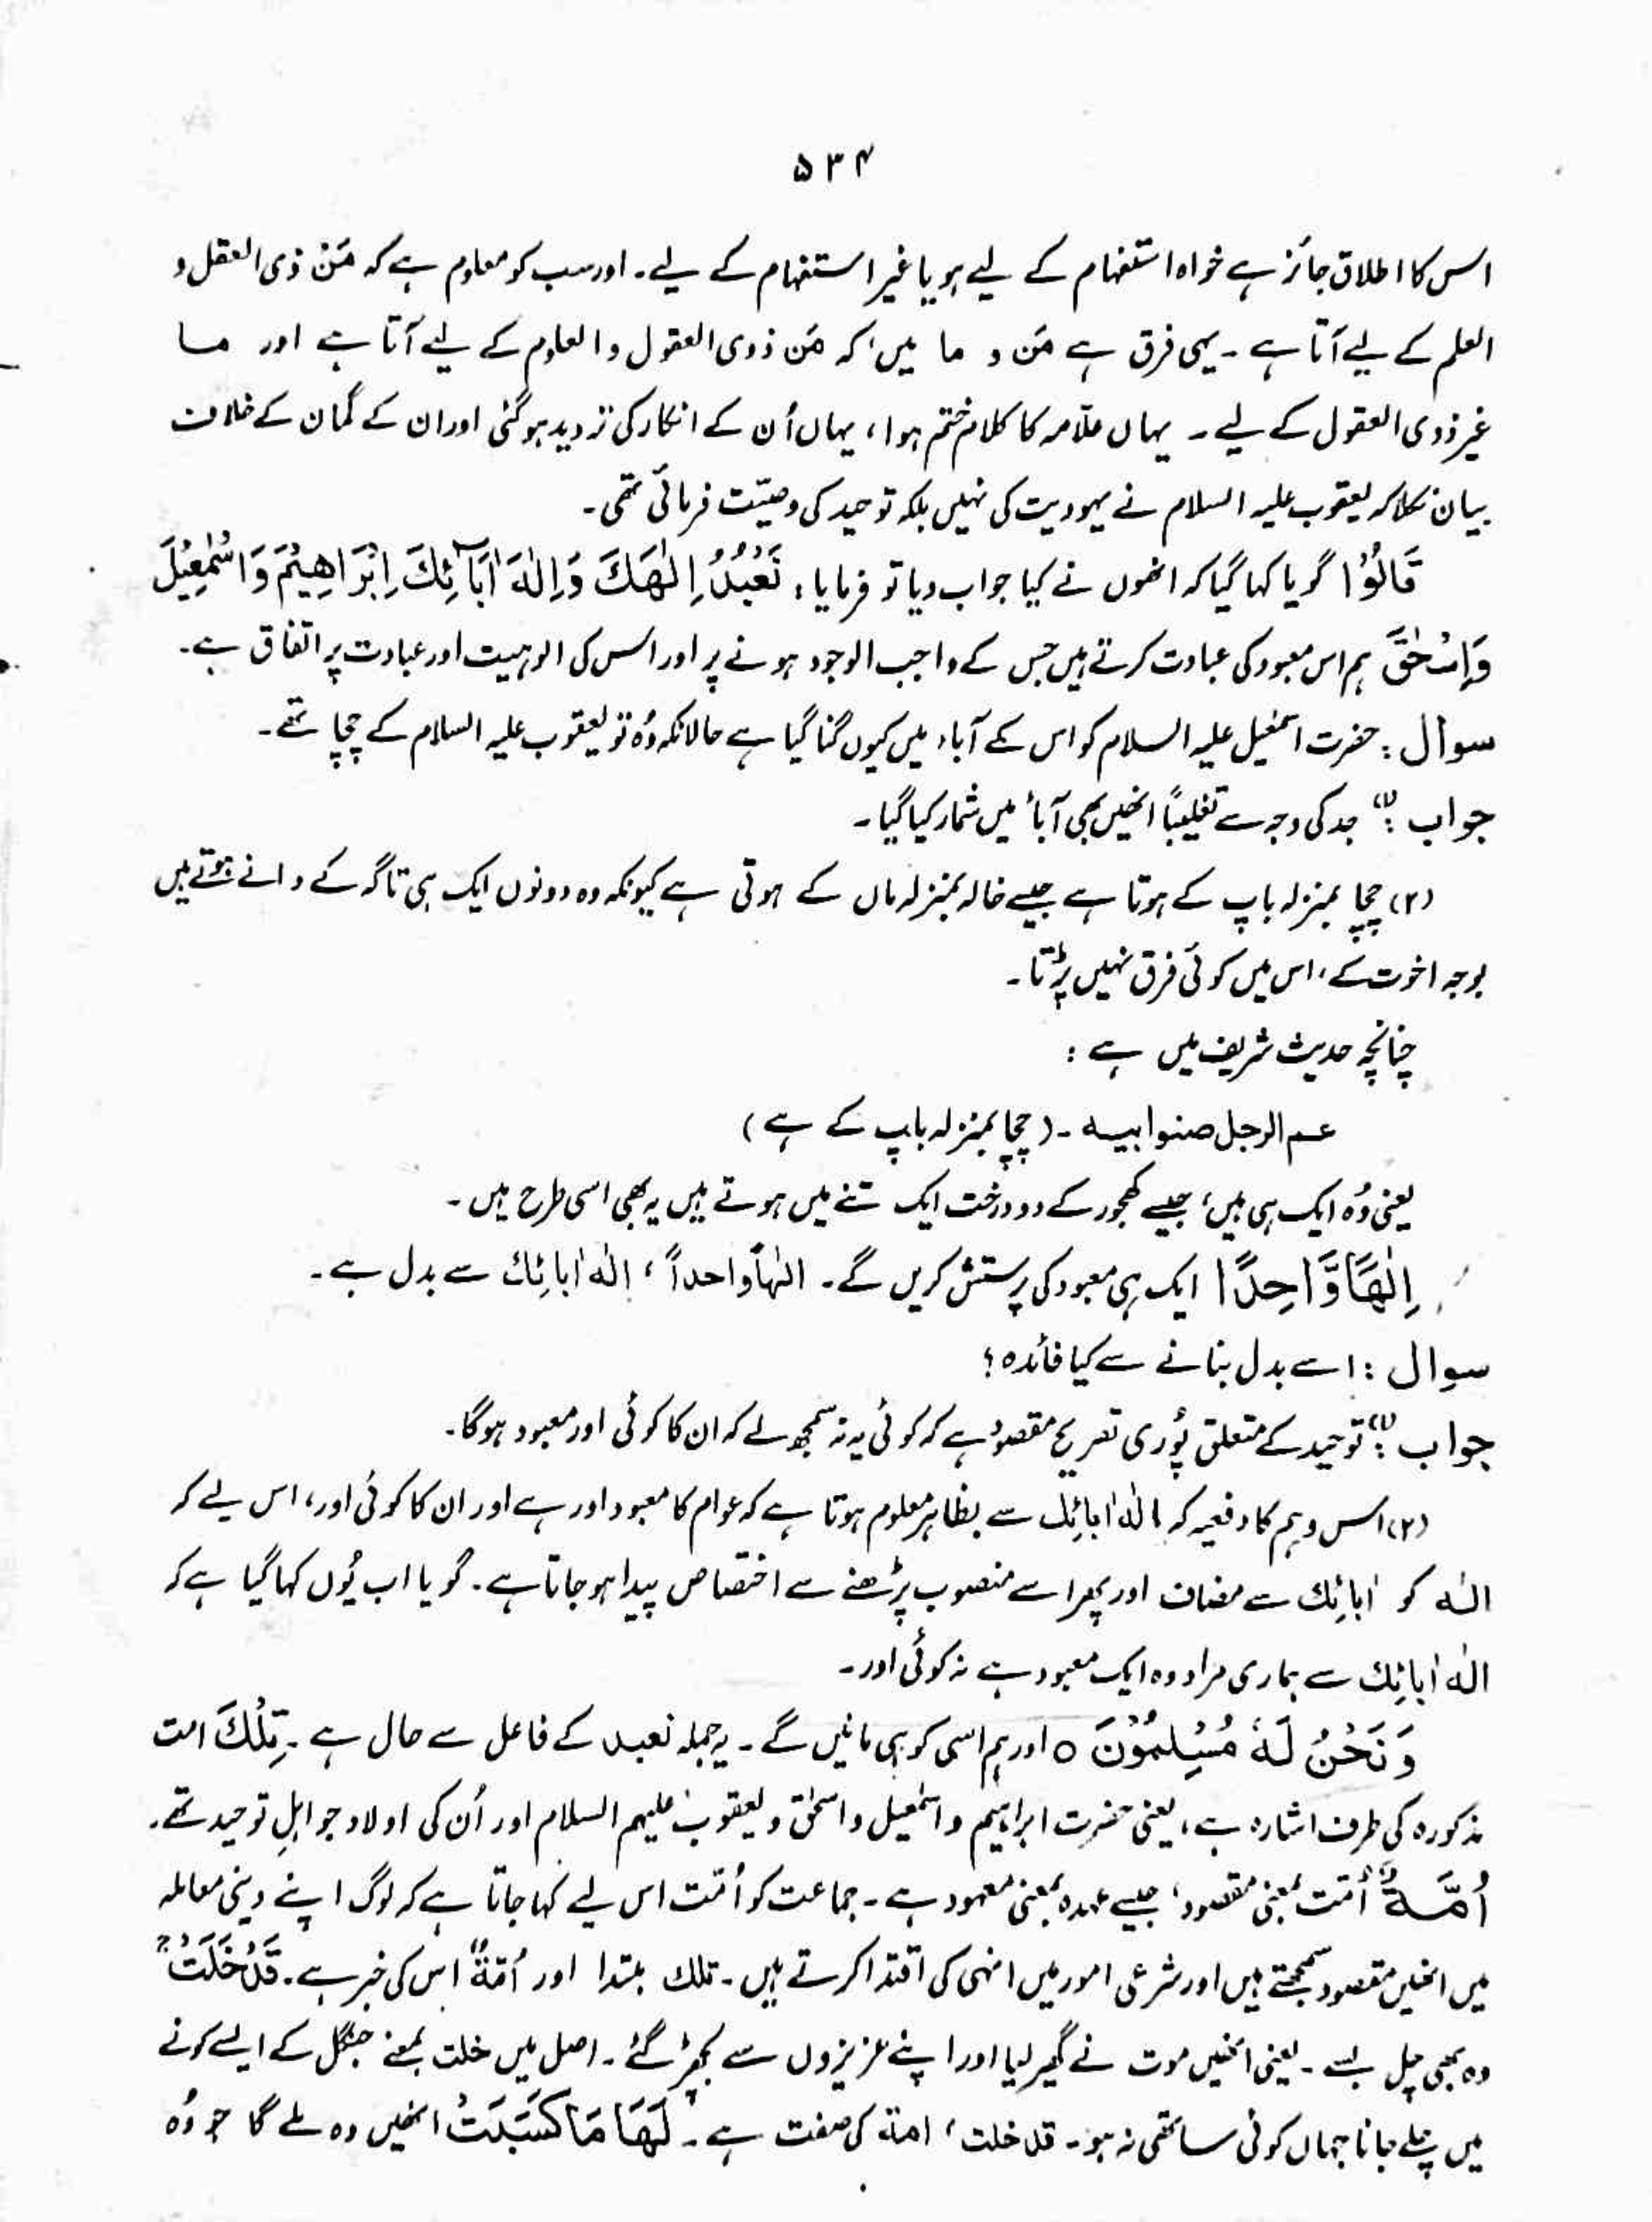 ۵۳۴
اس کا اطلاق جائز ہے خواہ استفہام کے لیے ہو یا غیر استفہام کے لیے۔ اور سب کو معلوم ہے کہ مَنْ ذی العقل و
العلم کے لیے آتا ہے۔ یہی فرق ہے مَن و ما میں، کہ مَن ذوی العقول و العلوم کے لیے آتا ہے اور ما
غیر ذوی العقول کے لیے۔ یہاں علّامہ کا کلام ختم ہوا، یہاں اُن کے انکار کی تردید ہو گئی اور ان کے گمان کے خلاف
بیان نکلا کہ یعقوب علیہ السلام نے یہودیت کی نہیں بلکہ توحید کی وصیّت فرمائی تھی۔
قَالُوْا گویا کہا گیا کہ انھوں نے کیا جواب دیا تو فرمایا، نَعْبُدُ اِلٰهَكَ وَاِلٰهَ اٰبَآئِكَ اِبْرَاهِيْمَ وَاِسْمٰعِيْلَ
وَاِسْحٰقَ ہم اس معبود کی عبادت کرتے ہیں جس کے واجب الوجود ہونے پر اور اس کی الوہیت اور عبادت پر اتفاق ہے۔
سوال: حضرت اسمٰعیل علیہ السلام کو اس کے آباء میں کیوں گنا گیا ہے حالانکہ وُہ تو یعقوب علیہ السلام کے چچا تھے۔
جواب: (۱) جد کی وجہ سے تغلیبًا انھیں بھی آباء میں شمار کیا گیا۔
(۲) چچا بمنزلہ باپ کے ہوتا ہے جیسے خالہ بمنزلہ ماں کے ہوتی ہے کیونکہ وہ دونوں ایک ہی تاگہ کے دانے ہوتے ہیں
بوجہ اخوت کے، اس میں کوئی فرق نہیں پڑتا۔
چنانچہ حدیث شریف میں ہے :
عم الرجل صنوا بیہ ۔ (چچا بمنزلہ باپ کے ہے)
یعنی وُہ ایک ہی ہیں، جیسے کھجور کے دو درخت ایک تنے میں ہوتے ہیں یہ بھی اسی طرح ہیں۔
اِلٰهًا وَّاحِدًا ایک ہی معبود کی پرستش کریں گے۔ الٰہًا واحداً، الٰہ اٰبائِك سے بدل ہے۔
سوال : اسے بدل بنانے سے کیا فائدہ؟
جواب: (۱) توحید کے متعلق پُوری تصریح مقصود ہے کہ کوئی یہ نہ سمجھ لے کہ ان کا کوئی اور معبود ہوگا۔
(۲) اس وہم کا دفعیہ کہ الٰہ اٰبائِك سے بظاہر معلوم ہوتا ہے کہ عوام کا معبود اور ہے اور ان کا کوئی اور، اس لیے کہ
الٰہ کو اٰبائِك سے مضاف اور پھر اسے منصوب پڑھنے سے اختصاص پیدا ہو جاتا ہے۔ گویا اب یُوں کہا گیا ہے کہ
الٰہ اٰبائِك سے ہماری مراد وہ ایک معبود ہے نہ کوئی اور۔
وَنَحْنُ لَهٗ مُسْلِمُوْنَ ○ اور ہم اسی کو ہی مانیں گے۔ یہ جملہ نعبد کے فاعل سے حال ہے۔ تِلْكَ امت
مذکورہ کی طرف اشارہ ہے، یعنی حضرت ابراہیم و اسمٰعیل و اسحٰق و یعقوب علیہم السلام اور اُن کی اولاد جو اہلِ توحید تھے۔
اُمَّةٌ اُمّت بمعنی مقصود، جیسے عہدہ بمعنی معہود ہے۔ جماعت کو اُمّت اس لیے کہا جاتا ہے کہ لوگ اپنے دینی معاملہ
میں انھیں مقصود سمجھتے ہیں اور شرعی امور میں انہی کی اقتدا کرتے ہیں۔ تلك مبتدا اور اُمّةٌ اس کی خبر ہے۔ قَدْ خَلَتْ
وہ بھی چل بسے۔ یعنی انھیں موت نے گھیر لیا اور اپنے عزیزوں سے بچھڑ گئے۔ اصل میں خلت بمعنے جنگل کے ایسے کونے
میں چلے جانا جہاں کوئی ساتھی نہ ہو۔ قد خلت، امة کی صفت ہے۔ لَهَا مَا كَسَبَتْ انھیں وہ ملے گا جو وُہ